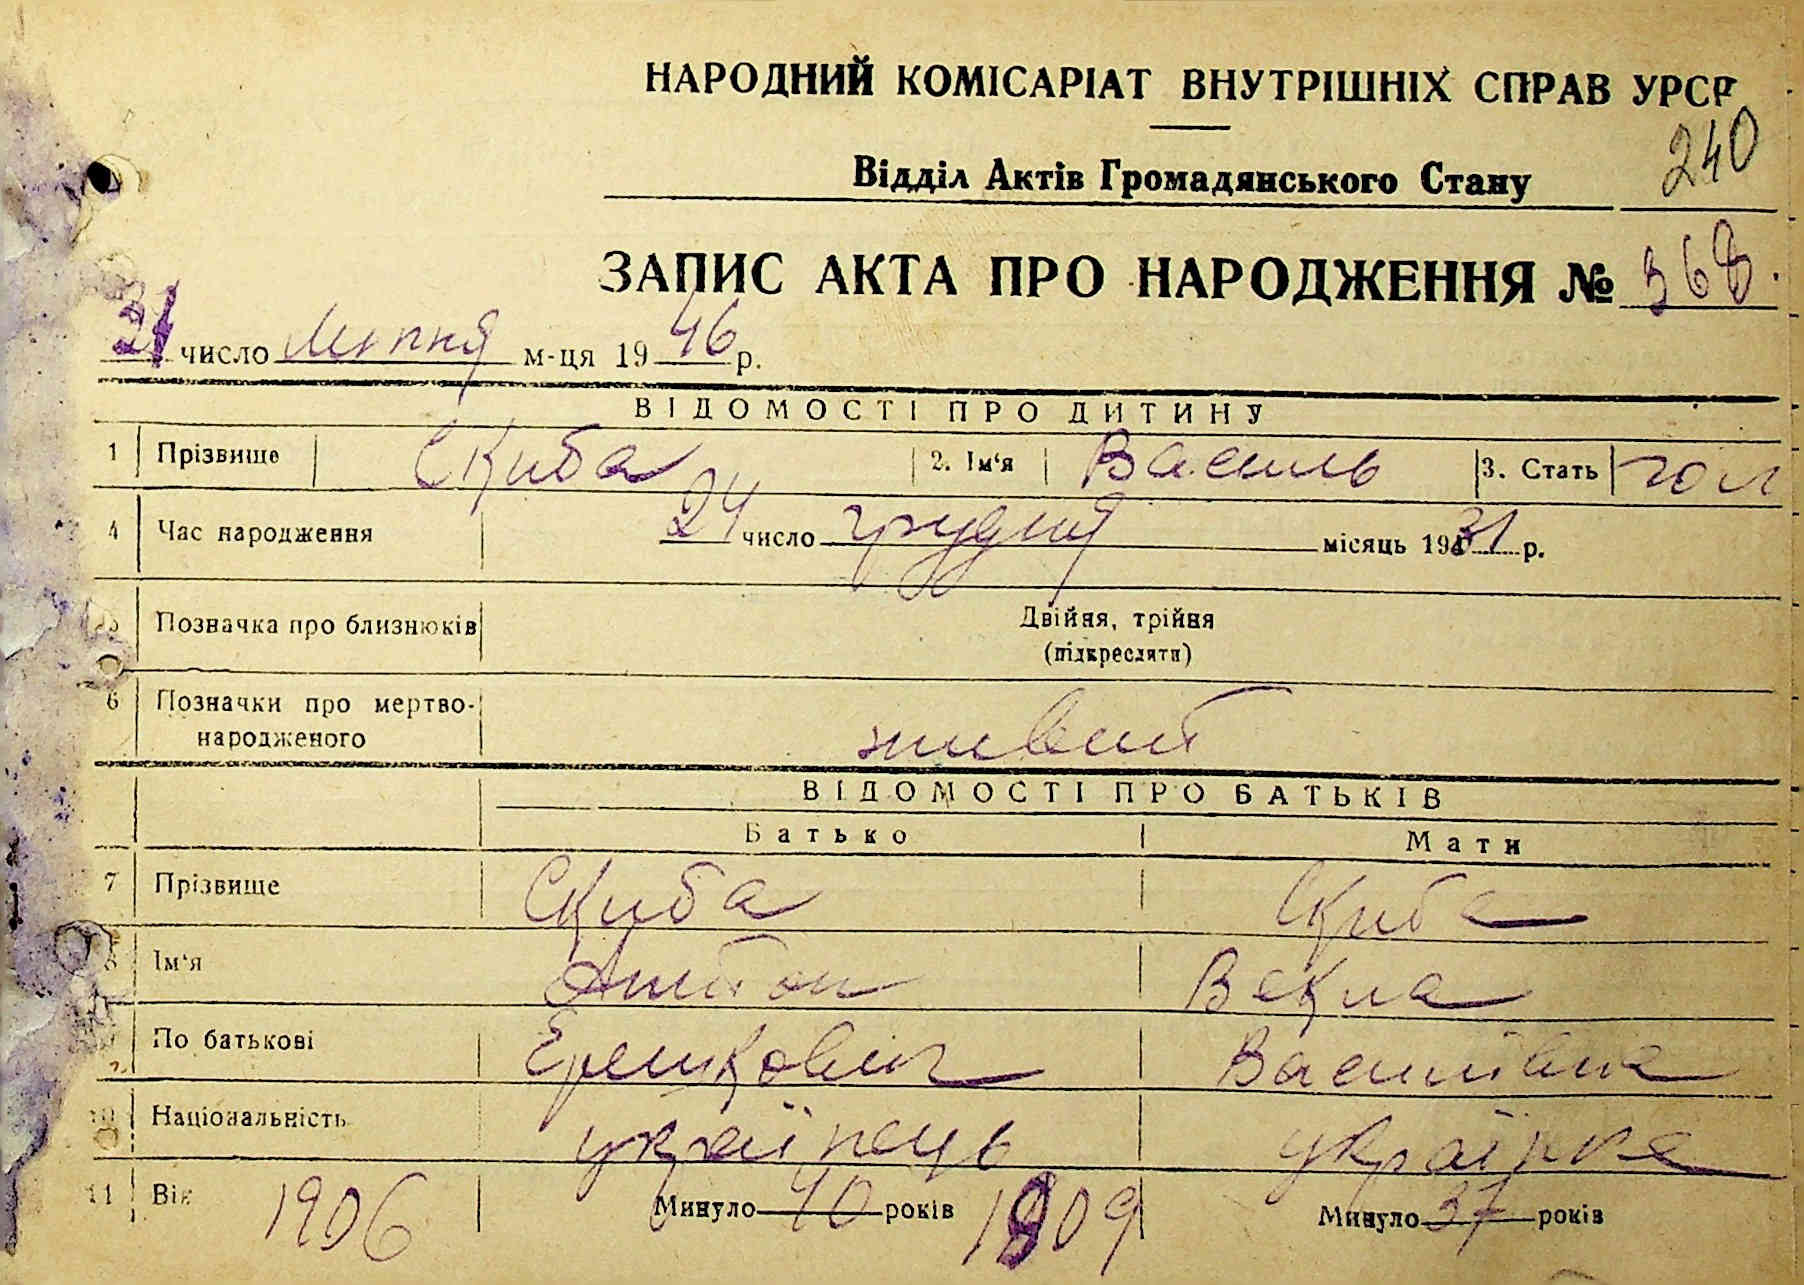 НАРОДНИЙ КОМІСАРІАТ ВНУТРІШНІХ СПРАВ УРСР
240
Відділ Актів Громадянського Стану
ЗАПИС АКТА ПРО НАРОДЖЕННЯ № 368.
31 число Липня м-ця 1946 р.
ВІДОМОСТІ ПРО ДИТИНУ
1 Прізвище Скиба 2. Ім'я Василь 3. Стать чол
4 Час народження 24 число грудня місяць 1931 р.
5 Позначка про близнюків Двійня, трійня
(підкреслити)
6 Позначки про мертво-
народженого живий
ВІДОМОСТІ ПРО БАТЬКІВ
Батько Мати
7 Прізвище Скиба Скиба
8 Ім'я Антон Векла
9 По батькові Василівна
10 Національність українець українка
11 Вік 1906 Минуло 40 років 1909 Минуло 37 років